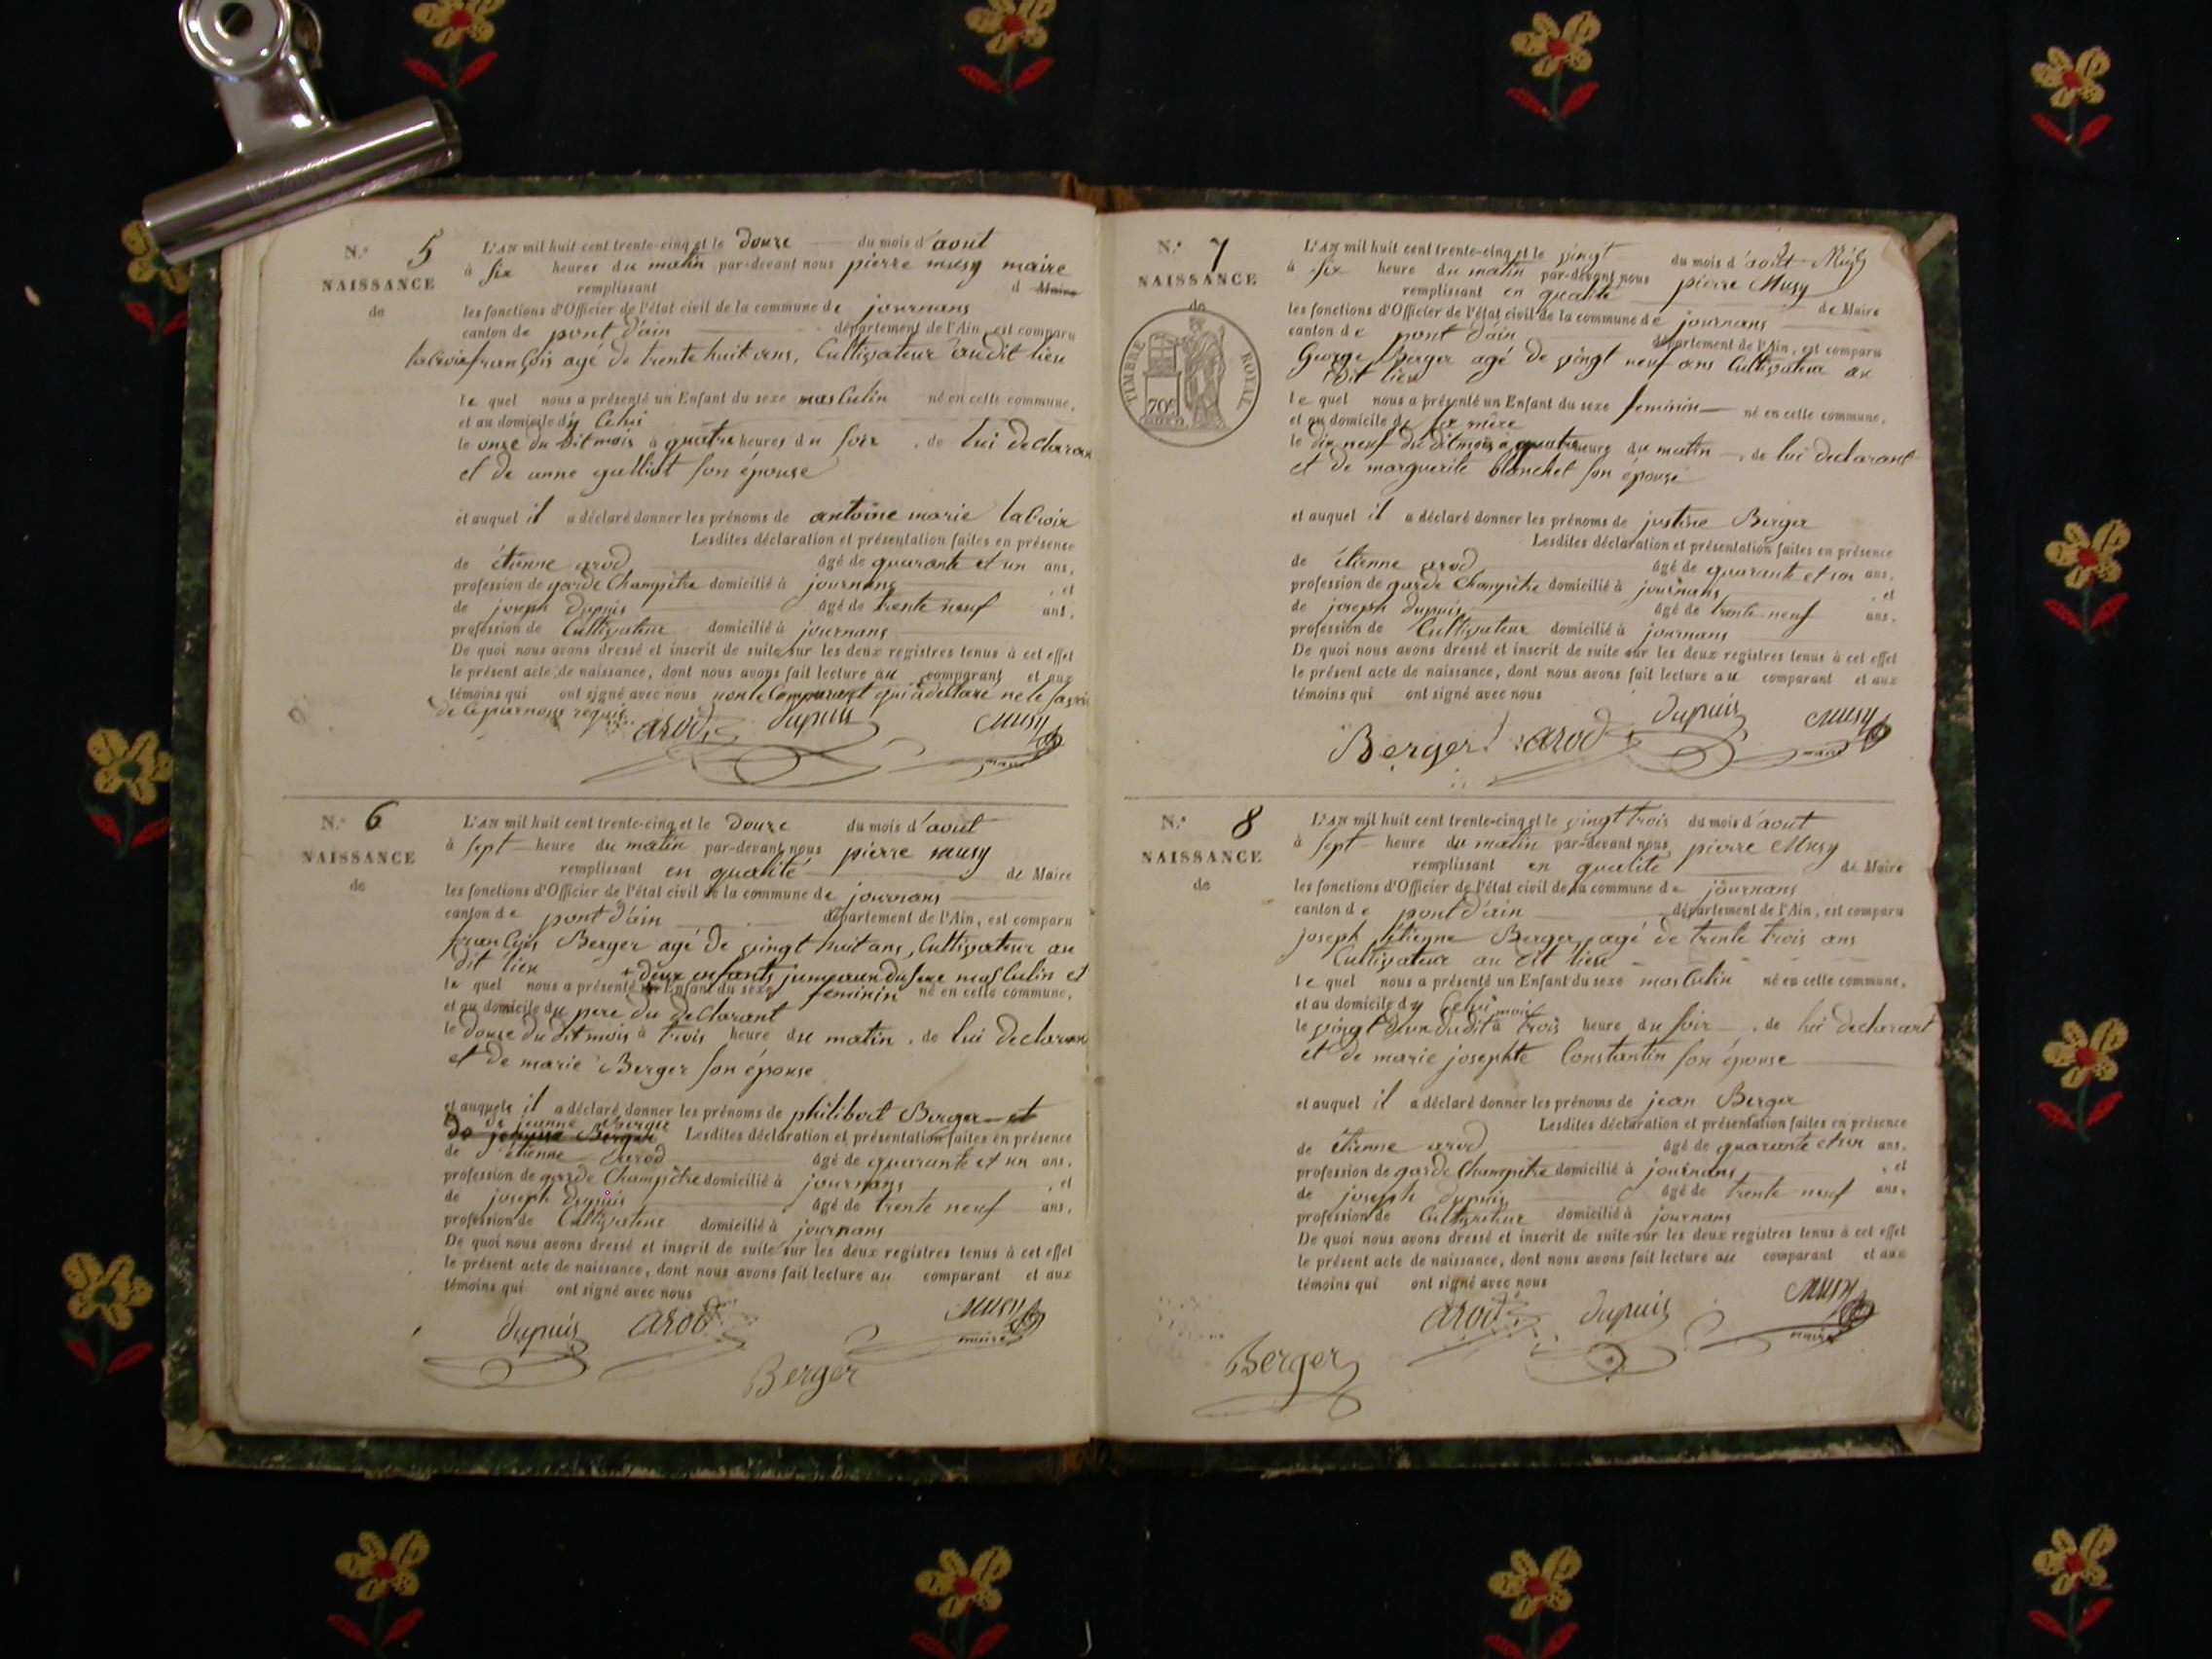 N.° 5
NAISSANCE
de
L'AN mil huit cent trente-cinq et le douze du mois d'aout
à six heures du matin par-devant nous pierre musy maire
remplissant d Maire
les fonctions d'Officier de l'état civil de la commune de journans
canton de pont d'ain département de l'Ain, est comparu
françois agé de trente huit ans, Cultivateur audit lieu
le quel nous a présenté un Enfant du sexe masculin né en cette commune,
et au domicile dy Celui
le onze du dit mois à quatre heures du soir, de lui declarant
et de anne son épouse
et auquel il a déclaré donner les prénoms de antoine marie
Lesdites déclaration et présentation faites en présence
de étienne arod âgé de quarante et un ans,
profession de garde Champêtre domicilié à journans, et
de joseph dupuis âgé de trente neuf ans,
profession de Cultivateur domicilié à journans
De quoi nous avons dressé et inscrit de suite sur les deux registres tenus à cet effet
le présent acte de naissance, dont nous avons fait lecture au comparant et aux
témoins qui ont signé avec nous non le Comparant qui a déclaré ne le savoir
de ce par nous requis
arod dupuis Musy
maire
N.° 6
NAISSANCE
de
L'AN mil huit cent trente-cinq et le douze du mois d'aout
à sept heure du matin par-devant nous pierre musy
remplissant en qualité de Maire
les fonctions d'Officier de l'état civil de la commune de journans
canton de pont d'ain département de l'Ain, est comparu
françois Berger agé de vingt huit ans, Cultivateur au
dit lieu
+ deux enfants jumeaux du sexe masculin et
le quel nous a présenté un Enfant du sexe feminin né en cette commune,
et au domicile du pere du declarant
le douze du dit mois à trois heure du matin, de lui declarant
et de marie Berger son épouse
et auquels il a déclaré donner les prénoms de philibert Berger et
de jeanne Berger
de jeanne Berger Lesdites déclaration et présentation faites en présence
de étienne arod âgé de quarante et un ans,
profession de garde Champêtre domicilié à journans, et
de joseph dupuis âgé de trente neuf ans,
profession de Cultivateur domicilié à journans
De quoi nous avons dressé et inscrit de suite sur les deux registres tenus à cet effet
le présent acte de naissance, dont nous avons fait lecture au comparant et aux
témoins qui ont signé avec nous
dupuis arod Musy
maire
Berger
N.° 7
NAISSANCE
de
TIMBRE ROYAL
70c
L'AN mil huit cent trente-cinq et le vingt du mois d'août
à six heure du matin par-devant nous pierre Musy
remplissant en qualité de Maire
les fonctions d'Officier de l'état civil de la commune de journans
canton de pont d'ain département de l'Ain, est comparu
George Berger agé de vingt neuf ans Cultivateur au
dit lieu
le quel nous a présenté un Enfant du sexe feminin né en cette commune,
et au domicile de sa mère
le dix neuf du dit mois a quatre heure du matin, de lui declarant
et de marguerite blanchet son épouse
et auquel il a déclaré donner les prénoms de justine Berger
Lesdites déclaration et présentation faites en présence
de étienne arod âgé de quarante et un ans,
profession de garde Champêtre domicilié à journans, et
de joseph dupuis âgé de trente neuf ans,
profession de Cultivateur domicilié à journans
De quoi nous avons dressé et inscrit de suite sur les deux registres tenus à cet effet
le présent acte de naissance, dont nous avons fait lecture au comparant et aux
témoins qui ont signé avec nous
Berger arod dupuis Musy
maire
N.° 8
NAISSANCE
de
L'AN mil huit cent trente-cinq et le vingt trois du mois d'aout
à sept heure du matin par-devant nous pierre Musy
remplissant en qualité de Maire
les fonctions d'Officier de l'état civil de la commune de journans
canton de pont d'ain département de l'Ain, est comparu
joseph étienne Berger agé de trente trois ans
Cultivateur au dit lieu
le quel nous a présenté un Enfant du sexe masculin né en cette commune,
et au domicile dy Celui
le vingt deux du dit mois à trois heure du soir, de lui declarant
et de marie josephte Constantin son épouse
et auquel il a déclaré donner les prénoms de jean Berger
Lesdites déclaration et présentation faites en présence
de étienne arod âgé de quarante et un ans,
profession de garde Champêtre domicilié à journans, et
de joseph dupuis âgé de trente neuf ans,
profession de Cultivateur domicilié à journans
De quoi nous avons dressé et inscrit de suite sur les deux registres tenus à cet effet
le présent acte de naissance, dont nous avons fait lecture au comparant et aux
témoins qui ont signé avec nous
arod dupuis Musy
maire
Berger